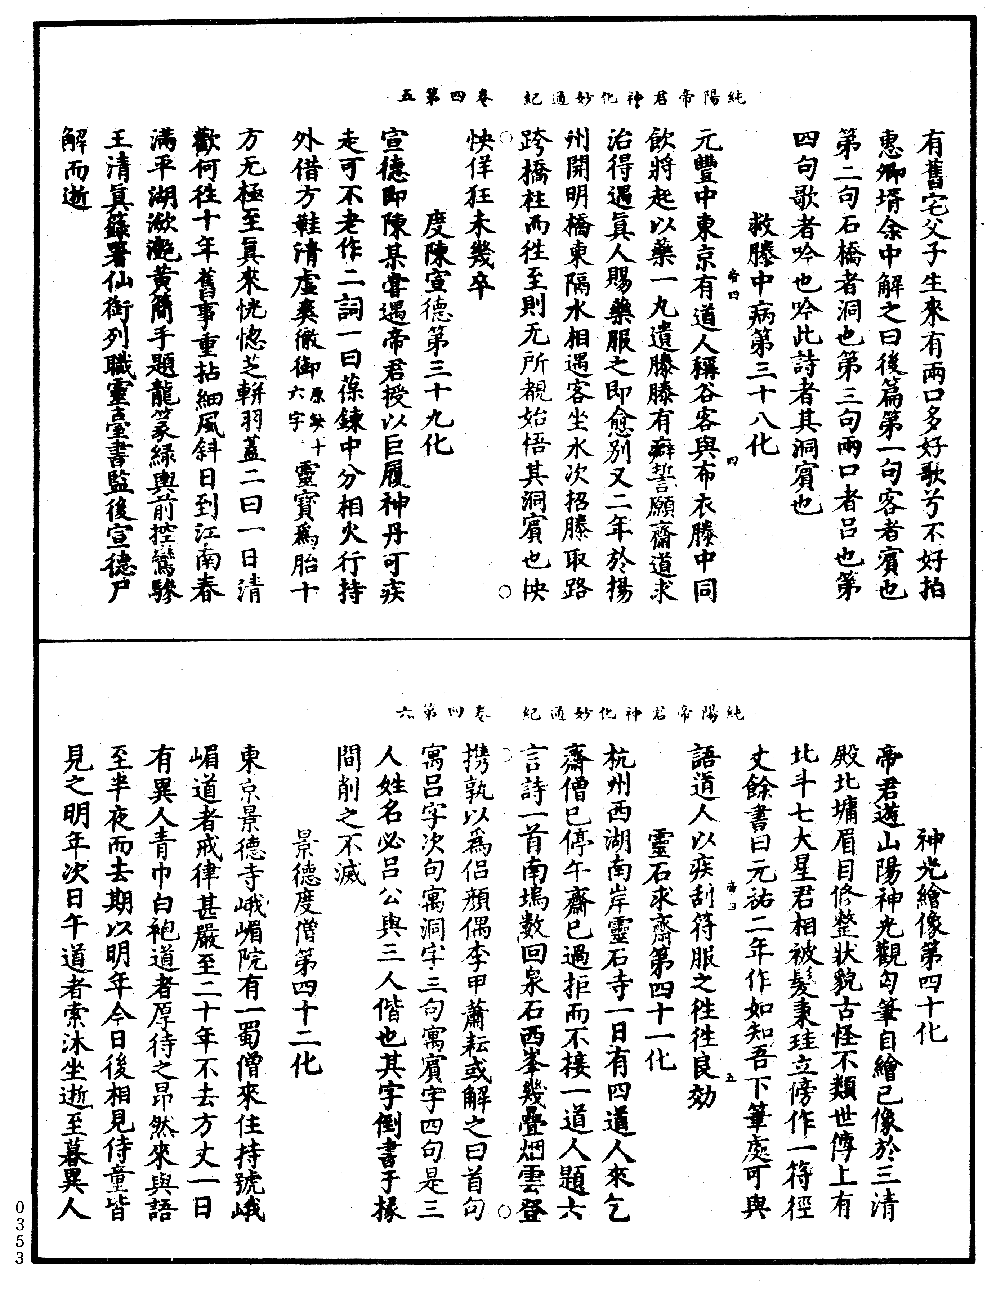 純陽帝君神化妙通紀　卷四第五
有舊宅父子生來有兩口多好歌兮不好拍
惠卿壻余中解之曰後篇第一句客者賓也
第二句石橋者洞也第三句兩口者呂也第
四句歌者吟也吟此詩者其洞賓也
救滕中病第三十八化
元豐中東京有道人稱谷客與布衣滕中同
飲將起以藥一丸遺滕滕有癖誓願齋道求
治得遇眞人賜藥服之即愈別又二年於揚
州開明橋東隔水相遇客坐水次招滕取路
跨橋柱而徃至則无所覩始悟其洞賓也怏
怏佯狂未幾卒
度陳宣德第三十九化
宣德即陳某嘗遇帝君授以巨履神丹可疾
走可不老作二詞一曰葆鍊中分相火行持
外借方鞋清虛爽儆御原缺十六字靈寶爲胎十
方无極至眞來恍惚芝軿羽蓋二曰一日清
歡何徃十年舊事重拈細風斜日到江南春
滿平湖瀲灧黄簡手題龍篆綠輿前控鸞驂
王清眞籙署仙銜列職靈臺書監後宣德尸
解而逝
純陽帝君神化妙通紀　卷四第六
神光繪像第四十化
帝君遊山陽神光觀匄筆自繪已像於三清
殿北墉眉目修整狀貌古怪不類世傳上有
北斗七大星君相被髮秉珪立傍作一符徑
丈餘書曰元祐二年作如知吾下筆處可與
語道人以疾刮符服之徃徃良効
靈石求齋第四十一化
杭州西湖南岸靈石寺一日有四道人來乞
齋僧已停午齋已過拒而不接一道人題六
言詩一首南塢數回泉石西峯幾疊烟雲登
携孰以爲侣顔偶李甲蕭耘或解之曰首句
寓呂字次句寓洞字三句寓賓字四句是三
人姓名必呂公與三人偕也其字倒書于椽
間削之不滅
景德度僧第四十二化
東京景德寺峨嵋院有一蜀僧來住持號峨
嵋道者戒律甚嚴至二十年不去方丈一日
有異人青巾白袍道者厚待之昂然來與語
至半夜而去期以明年今日後相見侍童皆
見之明年次日午道者索沐坐逝至暮異人
0353